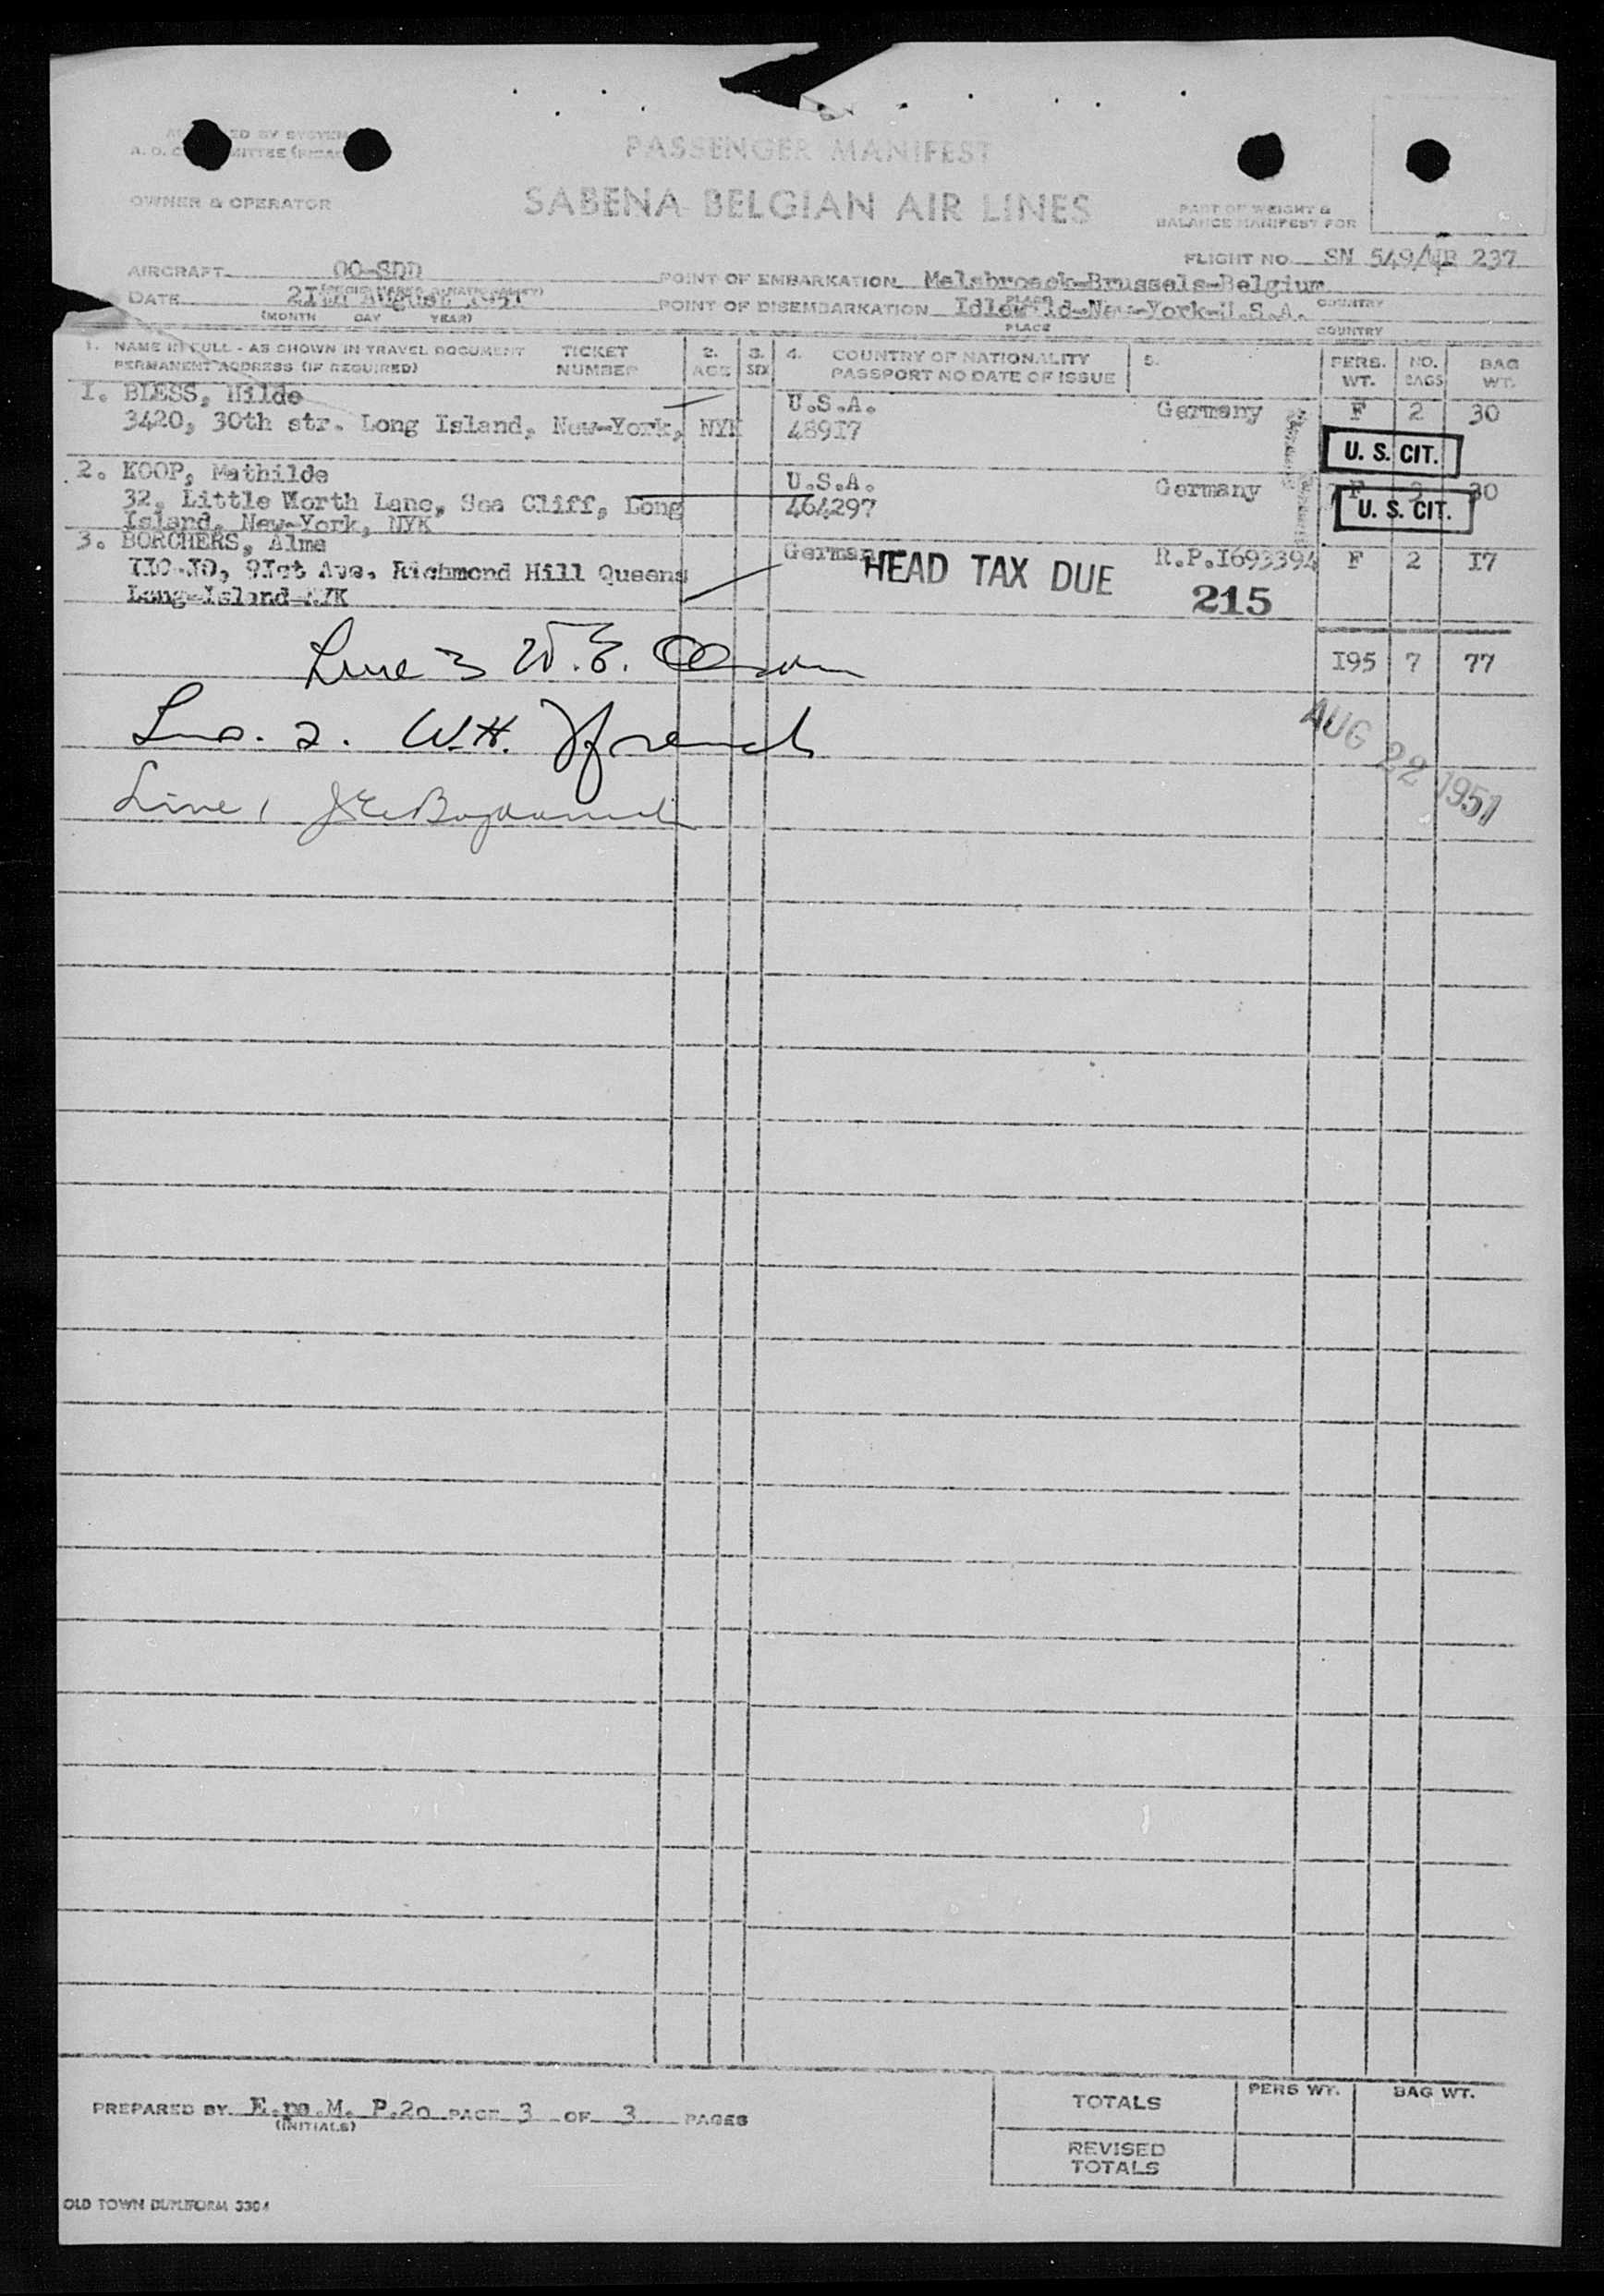 OWNER & OPERATOR
PASSENGER MANIFEST
SABENA BELGIAN AIR LINES
PART OF WEIGHT &
BALANCE MANIFEST FOR
FLIGHT NO. SN 549/WB 237
AIRCRAFT OO-SDD
POINT OF EMBARKATION Melsbroeck-Brussels-Belgium
DATE 21th August 1951
(MONTH DAY YEAR)
POINT OF DISEMBARKATION Idlewild-New-York-U.S.A.
PLACE COUNTRY
PLACE COUNTRY
1. NAME IN FULL - AS SHOWN IN TRAVEL DOCUMENT
PERMANENT ADDRESS (IF REQUIRED)
TICKET
NUMBER
2.
AGE
3.
SEX
4. COUNTRY OF NATIONALITY
PASSPORT NO DATE OF ISSUE
5.
PERS.
WT.
NO.
BAGS
BAG
WT.
I. BLESS, Hilde U.S.A. Germany F 2 30
3420, 30th str. Long Island, New-York, NYK 489I7
U. S. CIT.
2. KOOP, Mathilde U.S.A. Germany F 3 30
32, Little Worth Lane, Sea Cliff, Long 464297
U. S. CIT.
Island, New-York, NYK
3. BORCHERS, Alma German R.P.I693394 F 2 I7
HEAD TAX DUE
IIO-IO, 9Ist Ave. Richmond Hill Queens
215
Long-Island-NYK
Line 3 W.E. Olson
I95 7 77
2. W.H. Ffrench
AUG 22 1951
Line 1
PREPARED BY E.po.M. P.2o PAGE 3 OF 3 PAGES
(INITIALS)
TOTALS
PERS WT.
BAG WT.
REVISED
TOTALS
OLD TOWN DUPLIFORM 3304